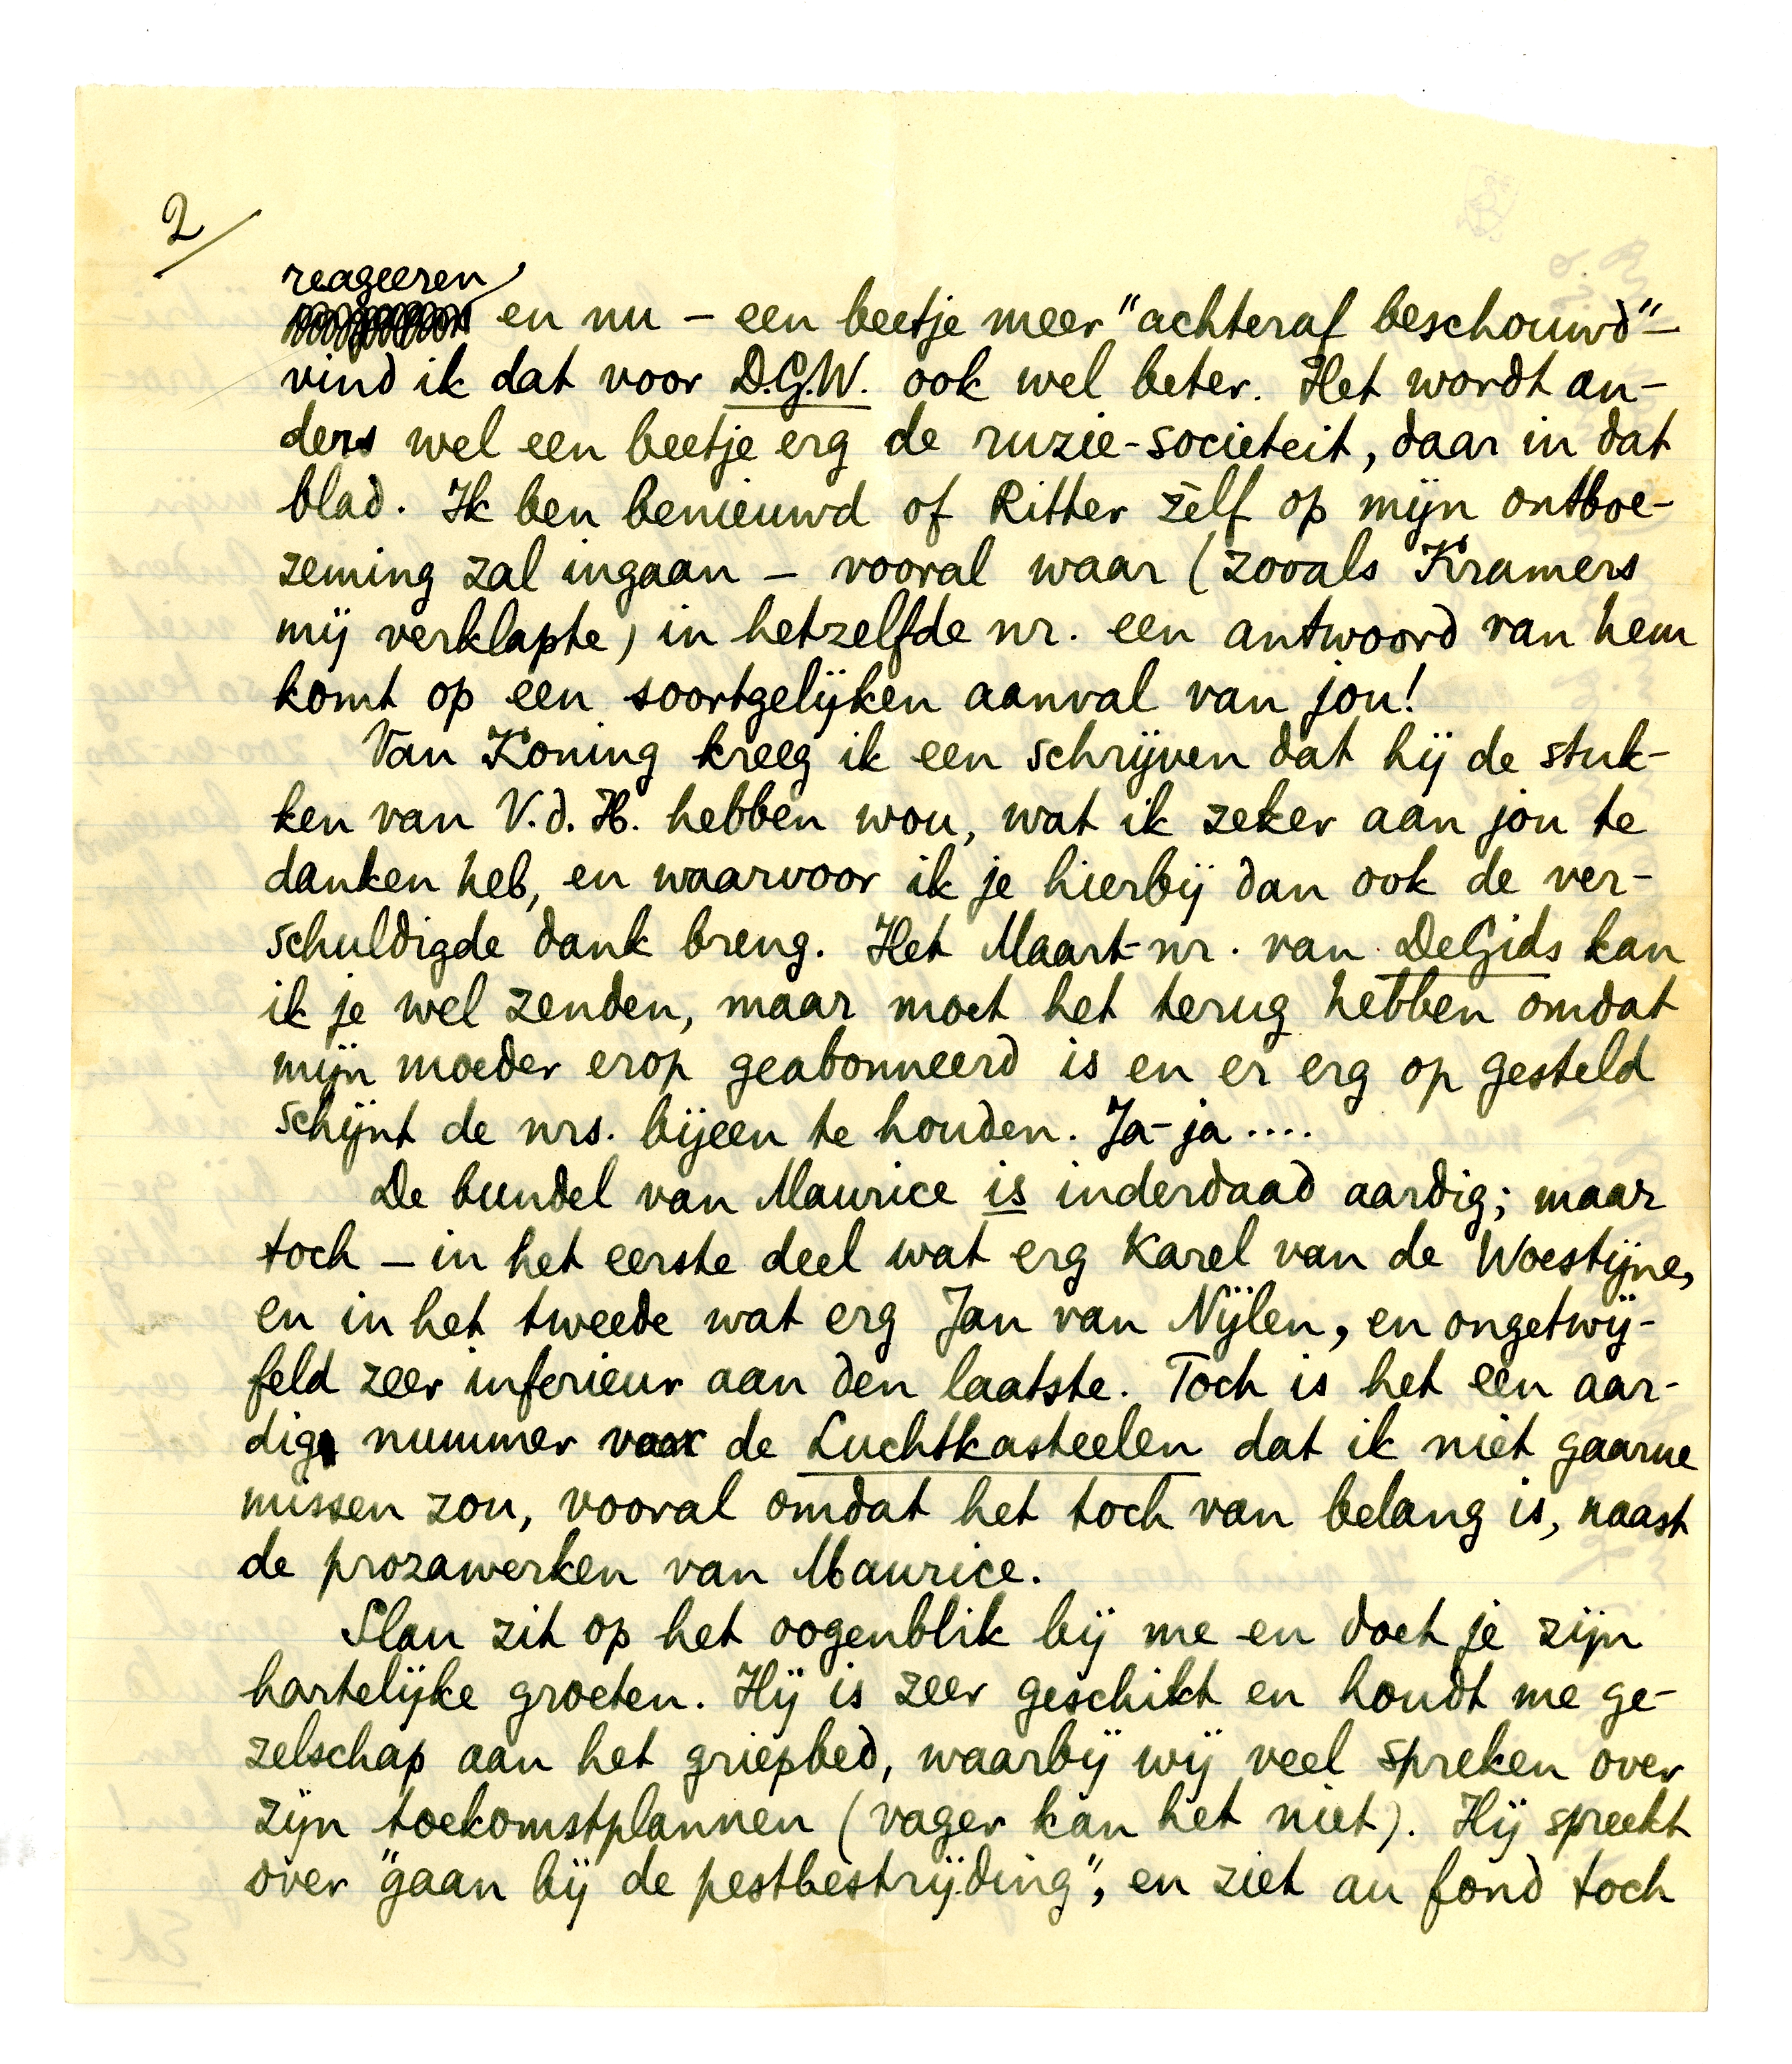 2/
reageeren
en nu – een beetje meer "achteraf beschouwd" –
vind ik dat voor D.G.W. ook wel beter. Het wordt an-
ders wel een beetje erg de ruzie-societeit, daar in dat
blad. Ik ben benieuwd of Ritter zèlf op mijn ontboe-
zeming zal ingaan – vooral waar (zooals Kramers
mij verklapte) in hetzelfde nr. een antwoord van hem
komt op een soortgelijken aanval van jou!
Van Koning kreeg ik een schrijven dat hij de stuk-
ken van V.d.H. hebben wou, wat ik zeker aan jou te
danken heb, en waarvoor ik je hierbij dan ook de ver-
schuldigde dank breng. Het Maart-nr. van De Gids kan
ik je wel zenden, maar moet het terug hebben omdat
mijn moeder erop geabonneerd is en er erg op gesteld
schijnt de nrs. bijeen te houden. Ja-ja....
De bundel van Maurice is inderdaad aardig; maar
toch – in het eerste deel wat erg Karel van de Woestijne,
en in het tweede wat erg Jan van Nijlen, en ongetwij-
feld zeer inferieur aan den laatste. Toch is het een aar-
dig nummer voor de Luchtkasteelen dat ik niet gaarne
missen zou, vooral omdat het toch van belang is, naast
de prozawerken van Maurice.
Slau zit op het oogenblik bij me en doet je zijn
hartelijke groeten. Hij is zeer geschikt en houdt me ge-
zelschap aan het griepbed, waarbij wij veel spreken over
zijn toekomstplannen (vager kan het niet). Hij spreekt
over "gaan bij de pestbestrijding", en ziet au fond toch